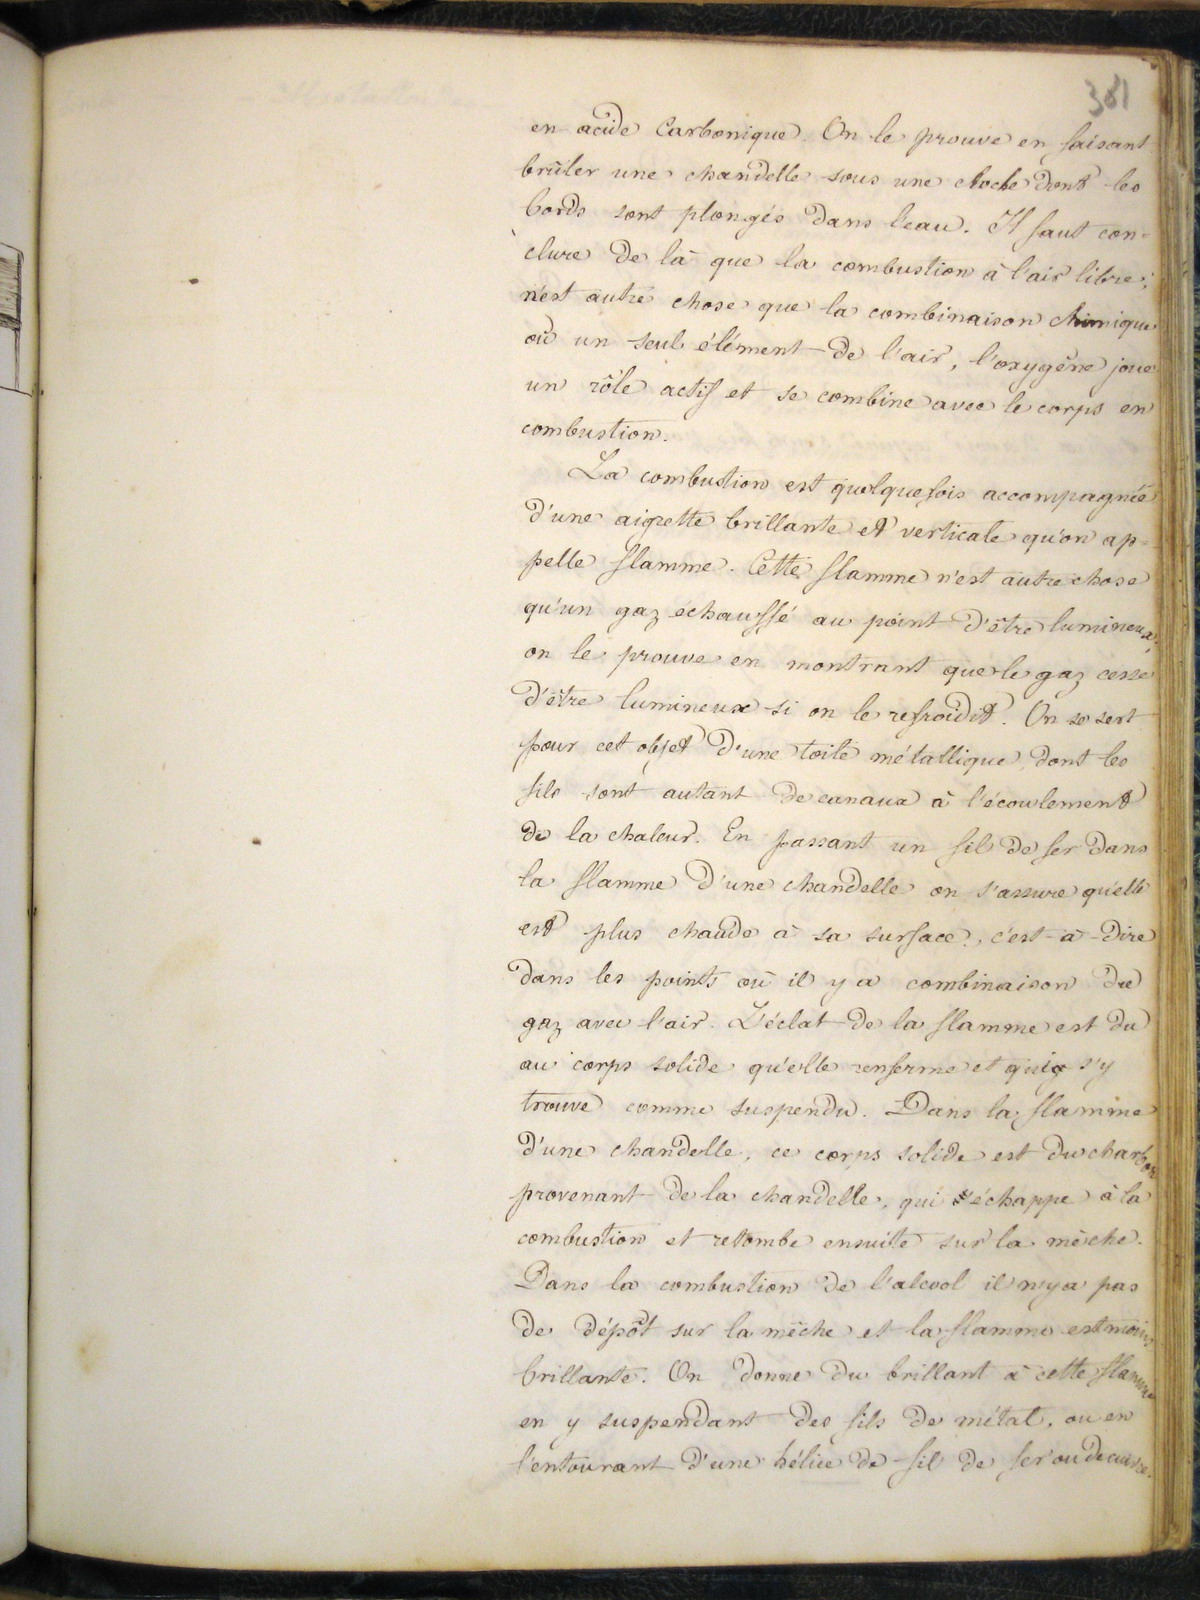 381
en acide Carbonique. On le prouve en faisant
brûler une chandelle sous une cloche dont les
bords sont plongés dans l'eau. Il faut con-
clure de là que la combustion à l'air libre,
n'est autre chose que la combinaison chimique
où un seul élément de l'air, l'oxygène joue
un rôle actif et se combine avec le corps en
combustion.
La combustion est quelquefois accompagnée
d'une aigrette brillante et verticale qu'on ap-
pelle flamme. Cette flamme n'est autre chose
qu'un gaz échauffé au point d'être lumineux,
on le prouve en montrant que le gaz cesse
d'être lumineux si on le refroidit. On se sert
pour cet objet d'une toile métallique, dont les
fils sont autant de canaux à l'écoulement
de la chaleur. En passant un fil de fer dans
la flamme d'une chandelle on s'assure qu'elle
est plus chaude à sa surface, c'est-à-dire
dans les points où il y a combinaison du
gaz avec l'air. L'éclat de la flamme est du
au corps solide qu'elle renferme et qui s'y
trouve comme suspendu. Dans la flamme
d'une chandelle, ce corps solide est du charbon
provenant de la chandelle, qui échappe à la
combustion et retombe ensuite sur la mèche.
Dans la combustion de l'alcool il n'y a pas
de dépôt sur la mèche et la flamme est moins
brillante. On donne du brillant à cette flamme
en y suspendant des fils de métal, ou en
l'entourant d'une hélice de fil de fer ou de cuivre.